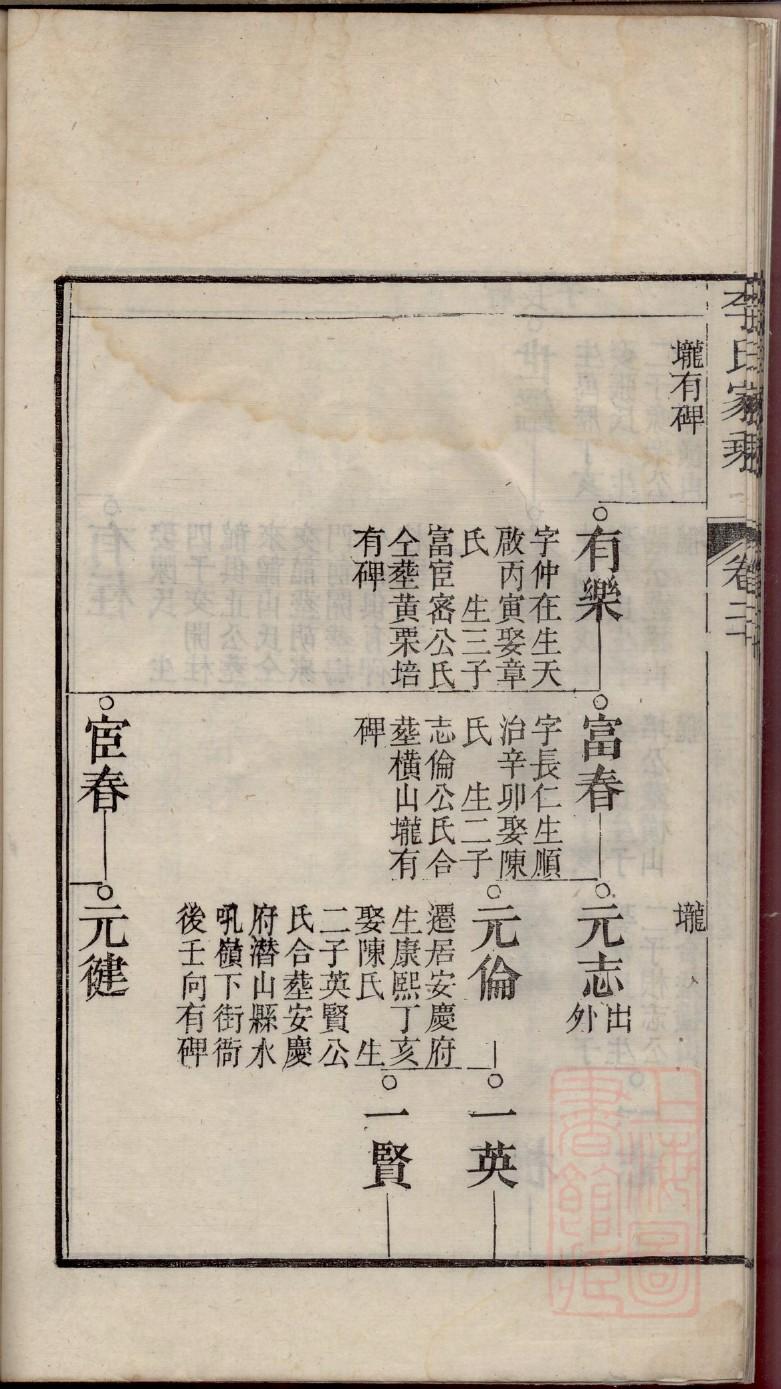 李氏家乘
卷二
壠有碑
有樂
字仲在生天
啟丙寅娶章
氏　生三子
富宦密公氏
仝塟黄栗培
有碑
富春
字長仁生順
治辛卯娶陳
氏　生二子
志倫公氏合
塟橫山壠有
碑
宦春
壠
元志
出
外
元倫
遷居安慶府
生康熙丁亥
娶陳氏　生
二子英賢公
氏合塟安慶
府潛山縣水
吼嶺下街衙
後壬向有碑
元健
一英
一賢
上海圖
書館藏